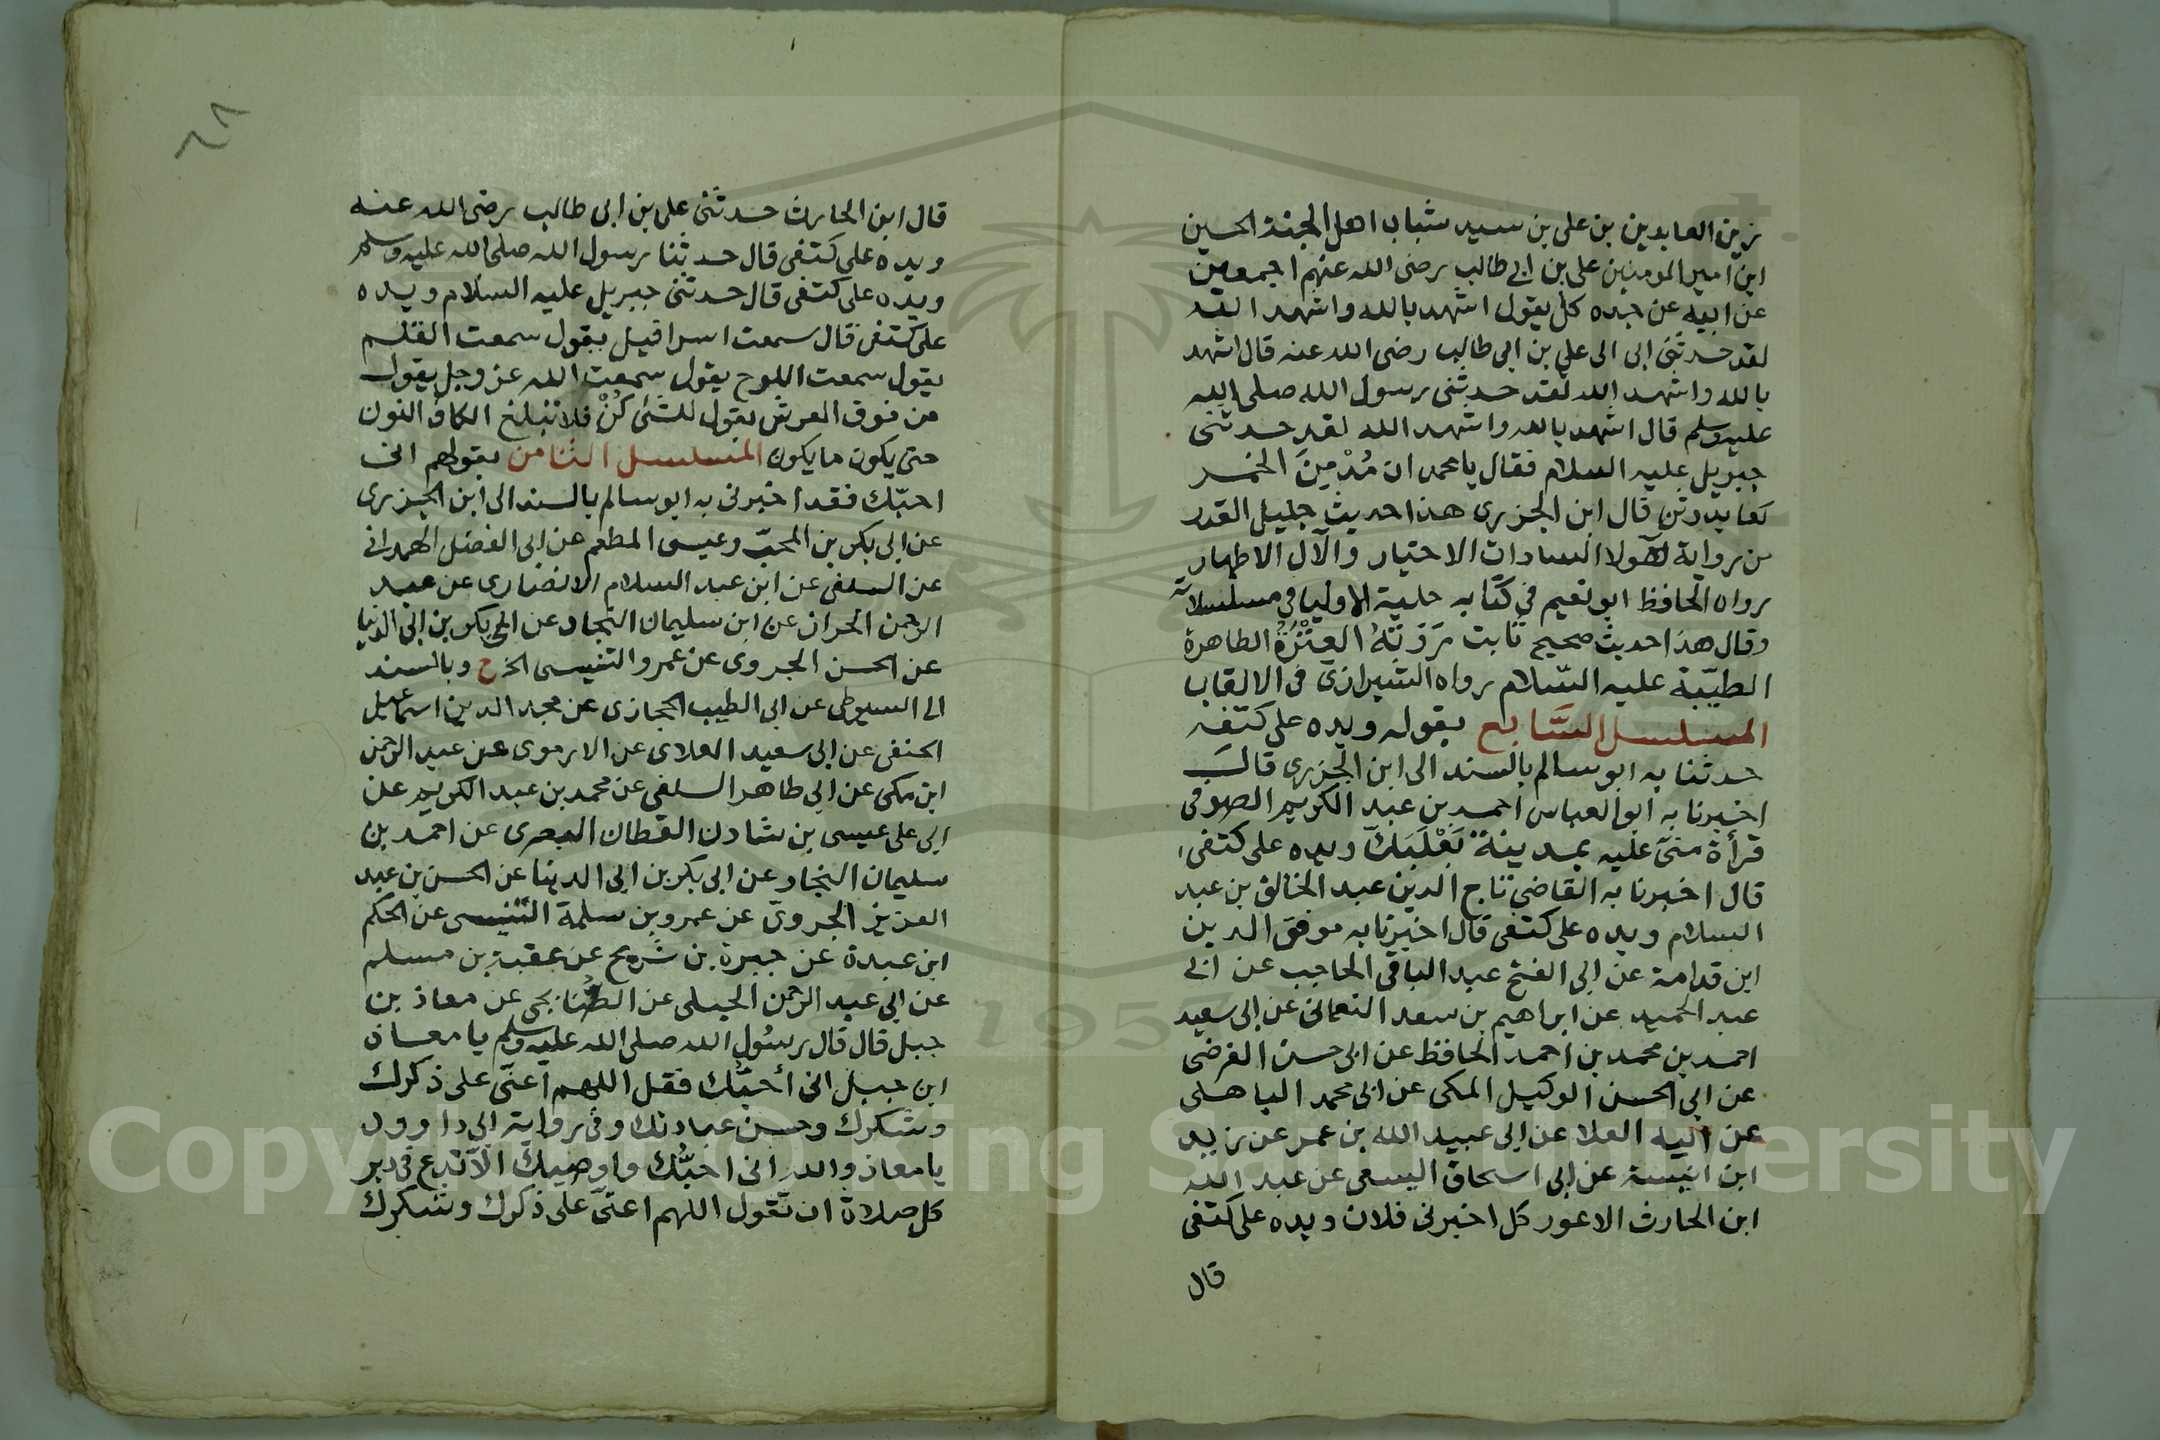 زين العابدين بن علي بن سيد شباب اهل الجنة الحسين
ابن امير المومنين علي بن ابي طالب رضى الله عنهم اجمعين
عن ابيه عن جده كل يقول اشهد بالله واشهد الله
لقد حدثنى ابى الى علي بن ابي طالب رضى الله عنه قال اشهد
بالله واشهد الله لقد حدثنى رسول الله صلى الله
عليه وسلم قال اشهد بالله واشهد الله لقد حدثنى
جبريل عليه السلام فقال يا محمد ان مُدْمِنَ الخمر
كعابد وثن قال ابن الجزرى هذا حديث جليل القدر
من رواية هولا السادات الاخيار والآل الاطهار
رواه الحافظ ابو نعيم في كتابه حلية الاوليا في مسلسلاته
وقال هذا حديث صحيح ثابت رَوَتْهُ العِتْرَةُ الطاهرة
الطيّبة عليه السّلام رواه الشيرازى في الالقاب
المسلسل السَّابع بقوله ويده على كتفه
حدثنا به ابو سالم بالسند الى ابن الجزرى قال
اخبرنا به ابو العباس احمد بن عبد الكريم الصوفى
قرأة منّى عليه بمدينة بَعْلَبَكّ ويده على كتفى
قال اخبرنا به القاضى تاج الدين عبد الخالق بن عبد
السلام ويده على كتفى قال اخبرنا به موفق الدين
ابن قدامة عن ابى الفتح عبد الباقى الحاجب عن ابى
عبد الحميد عن ابراهيم بن سعد النعمانى عن ابى سعيد
احمد بن محمد بن احمد الحافظ عن ابى حسن الفرضى
عن ابى الحسن الوكيل المكى عن ابى محمد الباهلى
عن ابيه العلا عن ابى عبيد الله بن عمر عن زيد
ابن انيسة عن ابى اسحاق السبعى عن عبد الله
ابن الحارث الاعور كل اخبرنى فلان ويده على كتفى
قال
٦٨
قال ابن الحارث حدثنى على بن ابى طالب رضى الله عنه
ويده على كتفى قال حدثنا رسول الله صلى الله عليه وسلم
ويده على كتفى قال حدثنى جبريل عليه السلام ويده
على كتفى قال سمعت اسرافيل يقول سمعت القلم
يقول سمعت اللوح يقول سمعت الله عز وجل يقول
من فوق العرش يقول للشئ كُنْ فلا تبلغ الكاف النون
حتى يكون ما يكون المسلسل الثامن بقولهم انى
احبّك فقد اخبرنى به ابو سالم بالسند الى ابن الجزرى
عن ابى بكر بن المحبّ وعيسى المطعم عن ابى الفضل الهمدانى
عن السلفى عن ابن عبد السلام الانصارى عن عبد
الرحمن الحران عن ابن سليمان النجاد عن ابى بكر بن ابى الدنيا
عن الحسن الجروى عن عمرو التنيسى الخ ح وبالسند
الى السيوطى عن ابى الطيب الحجازى عن مجد الدين اسماعيل
الحنفى عن ابى سعيد العلاى عن الارموى عن عبد الرحمن
ابن مكى عن ابى طاهر السلفى عن محمد بن عبد الكريم عن
ابى على عيسى بن شادن القطان البصرى عن احمد بن
سليمان النجاد عن ابى بكر بن ابى الدينا عن الحسن بن عبد
العزيز الجروىّ عن عمرو بن سلمة التنيسى عن الحكم
ابن عبدة عن حيوة بن شريح عن عقبة بن مسلم
عن ابى عبد الرحمن الحبلى عن الصُّنابحى عن معاذ بن
جبل قال قال رسُول الله صلى الله عليه وسلم يا معاذ
ابن جبل انى أحبُّك فقل اللهم اعنّى على ذكرك
وشكرك وحسن عبادتك وفى رواية ابى داوود
يا معاذ والله انى احبُّك واوصيك الّا تدع فى دبر
كل صلاة ان تقول اللهم اعنّى على ذكرك وشكرك
Copyright © King Saud University
1957